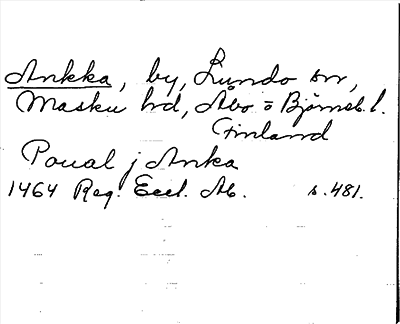 Ankka, by, Lundo sn,
Masku hd, Åbo o Björneb. l.
Finland
Poual j Anka
1464 Reg. Eccl. Ab. s. 481.